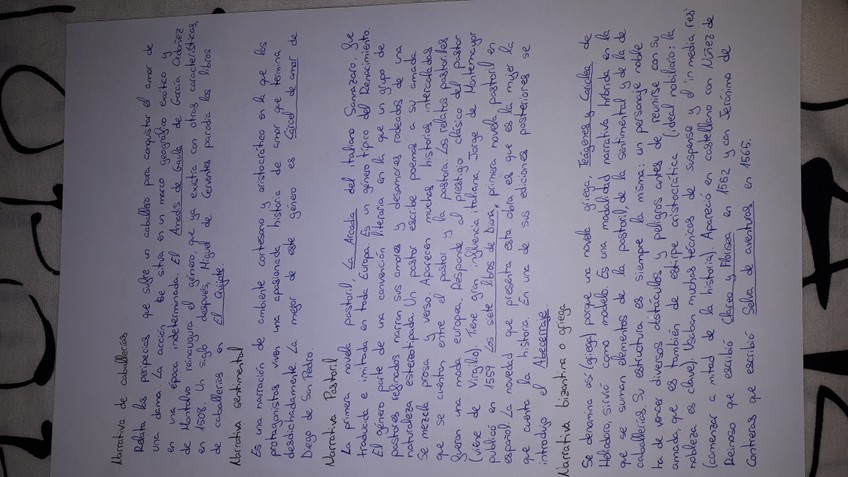 Narrativa de caballerías
Relata las peripecias que sufre un caballero para conquistar el amor de
una dama. La acción se sitúa en un marco geográfico exótico y
en una época indeterminada. El Amadís de Gaula de García Ordóñez
de Montalvo reinaugura el género, que ya existía con otras características,
en 1508. Un siglo después, Miguel de Cervantes parodia los libros
de caballerías en El Quijote
Narrativa sentimental
Es una narración de ambiente cortesano y aristocrático en la que los
protagonistas viven una apasionada historia de amor que termina
desdichadamente. La mejor de este género es Cárcel de amor de
Diego de San Pedro.
Narrativa Pastoril
La primera novela pastoril, La Arcadia del italiano Sannazaro, fue
traducida e imitada en toda Europa. Es un género típico del Renacimiento.
El género parte de una convención literaria en la que un grupo de
pastores refinados narran sus amores y desamores rodeados de una
naturaleza estereotipada. Un pastor escribe poemas a su amada
Se mezcla prosa y verso. Aparecen muchas historias intercaladas
que se cuentan entre el pastor y la pastora. Los relatos pastoriles
fueron una moda europea. Responde al prestigio clásico del pastor
(viene de Virgilio). Tiene gran influencia italiana. Jorge de Montemayor
publicó en 1559 Los siete libros de Diana, primera novela pastoril en
español. La novedad que presenta esta obra es que es la mujer la
que cuenta la historia. En una de sus ediciones posteriores se
introdujo el Abencerraje.
Narrativa bizantina o griega
Se denomina así (griega) porque una novela griega, Teágenes y Cariclea de
Heliodoro, sirvió como modelo. Es una modalidad narrativa híbrida en la
que se suman elementos de la pastoril, de la sentimental y de la de
caballerías. Su estructura es siempre la misma: un personaje noble
ha de vencer diversos obstáculos y peligros antes de reunirse con su
amada que es también de estirpe aristocrática (ideal nobiliario: la
nobleza es clave). Usaban muchas técnicas de suspense y el in media res
(comenzar a mitad de la historia). Apareció en castellano con Núñez de
Reinoso que escribió Clareo y Florisea en 1552 y con Jerónimo de
Contreras que escribió Selva de aventuras en 1565.